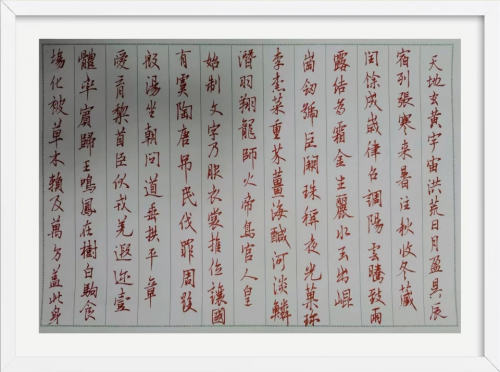 天地玄黄宇宙洪荒日月盈昃辰
宿列張寒来暑往秋收冬藏
閏餘成歲律吕調陽雲騰致雨
露結為霜金生麗水玉出崐
崗劍號巨闕珠稱夜光菓珍
李柰菜重芥薑海鹹河淡鱗
潛羽翔龍師火帝鳥官人皇
始制文字乃服衣裳推位讓國
有虞陶唐吊民伐罪周發
殷湯坐朝問道垂拱平章
愛育黎首臣伏戎羌遐迩壹
體率賓歸王鳴鳳在樹白駒食
場化被草木賴及萬方蓋此身